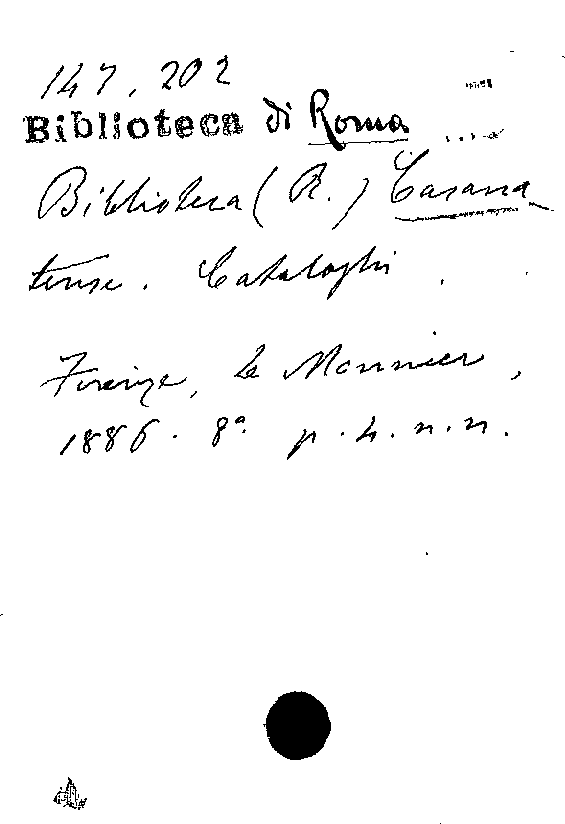 147.202
Biblioteca di Roma
Biblioteca (R.) Casana
tense. Cataloghi.
Firenze, Le Monnier,
1886. 8ª. p. 4. n. n.